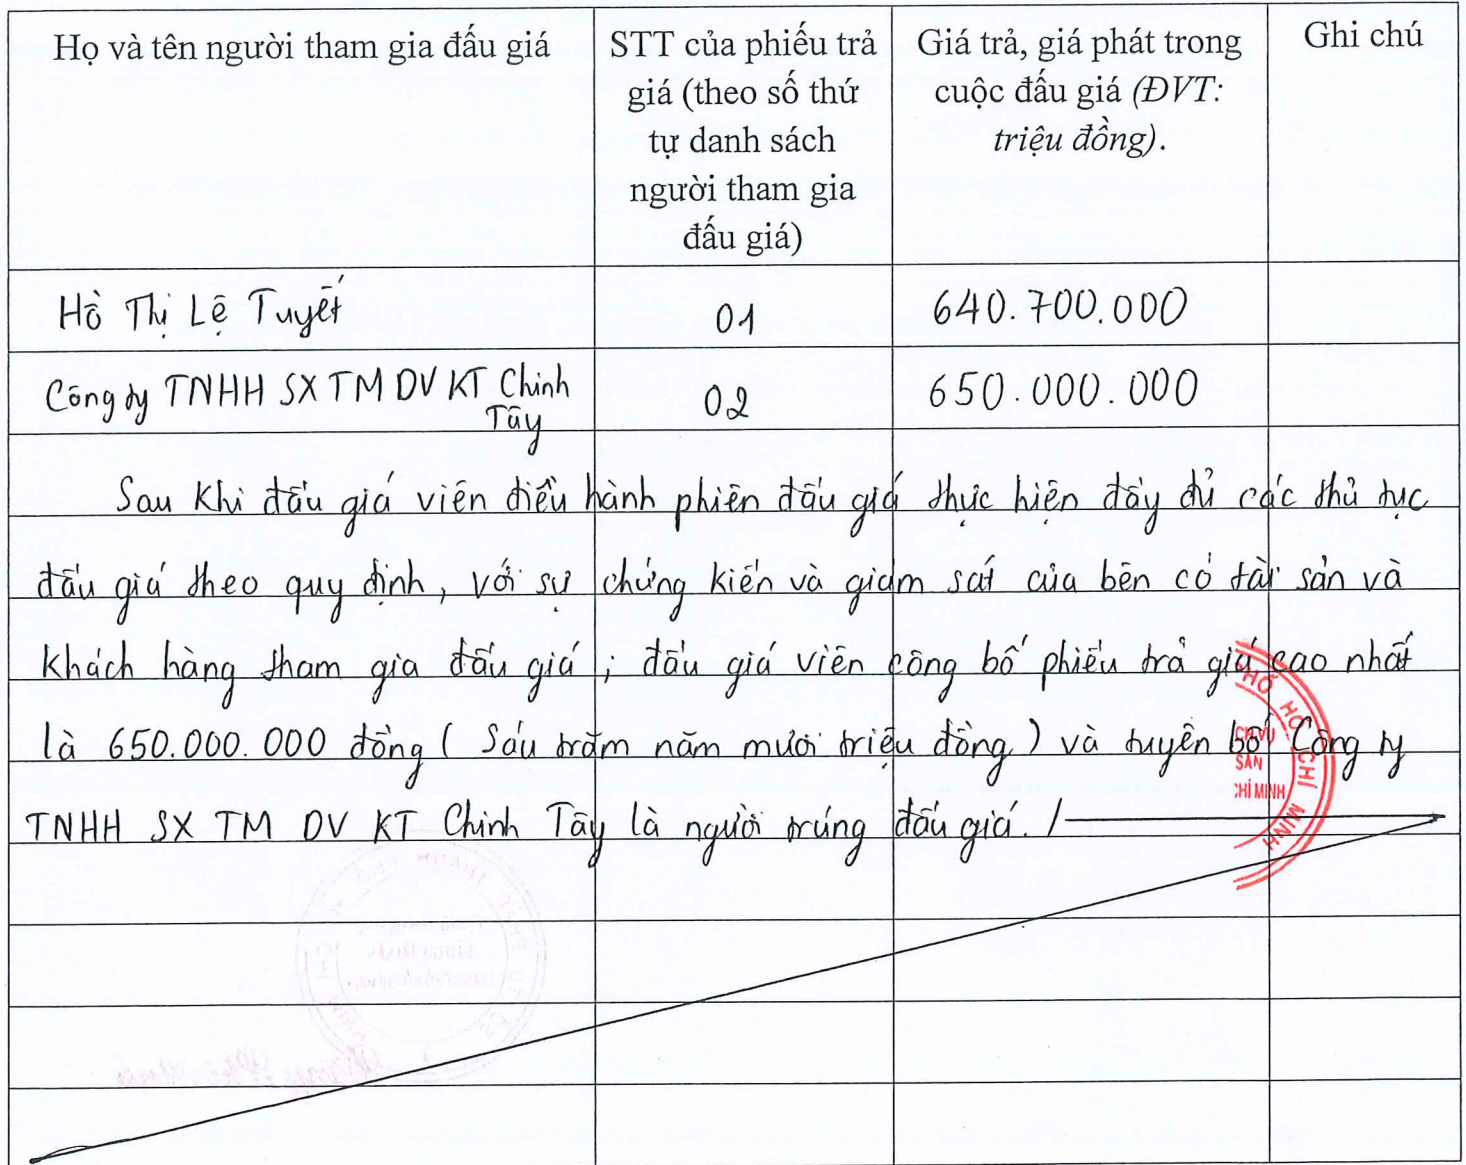 Họ và tên người tham gia đấu giá
STT của phiếu trả
giá (theo số thứ
tự danh sách
người tham gia
đấu giá)
Giá trả, giá phát trong
cuộc đấu giá (ĐVT:
triệu đồng).
Ghi chú
Hồ Thị Lệ Tuyết
01
640.700.000
Công ty TNHH SX TM DV KT Chinh
Tây
02
650.000.000
Sau khi đấu giá viên điều hành phiên đấu giá thực hiện đầy đủ các thủ tục
đấu giá theo quy định, với sự chứng kiến và giám sát của bên có tài sản và
khách hàng tham gia đấu giá; đấu giá viên công bố phiếu trả giá cao nhất
là 650.000.000 đồng (Sáu trăm năm mươi triệu đồng) và tuyên bố Công ty
TNHH SX TM DV KT Chinh Tây là người trúng đấu giá./
HỒ CHÍ MINH
SẢN
CHÍ MINH